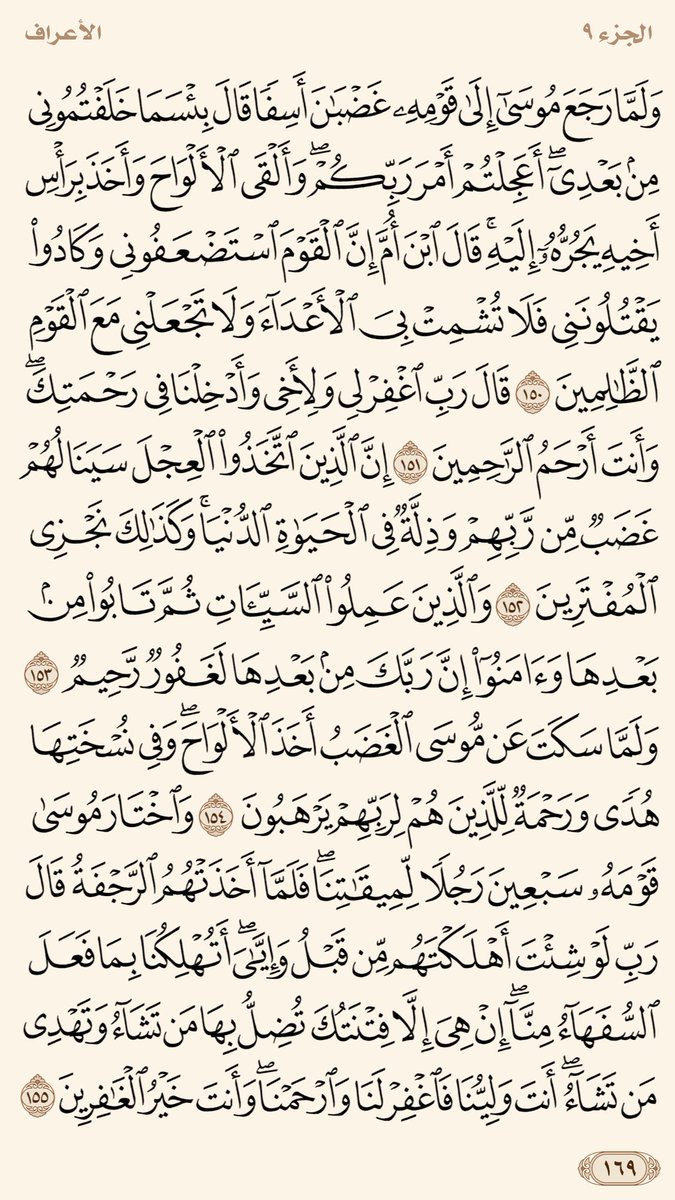 الجزء ٩
الأعراف
وَلَمَّا رَجَعَ مُوسَىٰٓ إِلَىٰ قَوْمِهِۦ غَضْبَٰنَ أَسِفًا قَالَ بِئْسَمَا خَلَفْتُمُونِى
مِنۢ بَعْدِىٓۖ أَعَجِلْتُمْ أَمْرَ رَبِّكُمْۖ وَأَلْقَى ٱلْأَلْوَاحَ وَأَخَذَ بِرَأْسِ
أَخِيهِ يَجُرُّهُۥٓ إِلَيْهِۚ قَالَ ٱبْنَ أُمَّ إِنَّ ٱلْقَوْمَ ٱسْتَضْعَفُونِى وَكَادُوا۟
يَقْتُلُونَنِى فَلَا تُشْمِتْ بِىَ ٱلْأَعْدَآءَ وَلَا تَجْعَلْنِى مَعَ ٱلْقَوْمِ
ٱلظَّٰلِمِينَ ١٥٠ قَالَ رَبِّ ٱغْفِرْ لِى وَلِأَخِى وَأَدْخِلْنَا فِى رَحْمَتِكَۖ
وَأَنتَ أَرْحَمُ ٱلرَّٰحِمِينَ ١٥١ إِنَّ ٱلَّذِينَ ٱتَّخَذُوا۟ ٱلْعِجْلَ سَيَنَالُهُمْ
غَضَبٌ مِّن رَّبِّهِمْ وَذِلَّةٌ فِى ٱلْحَيَوٰةِ ٱلدُّنْيَاۚ وَكَذَٰلِكَ نَجْزِى
ٱلْمُفْتَرِينَ ١٥٢ وَٱلَّذِينَ عَمِلُوا۟ ٱلسَّيِّـَٔاتِ ثُمَّ تَابُوا۟ مِنۢ
بَعْدِهَا وَءَامَنُوٓا۟ إِنَّ رَبَّكَ مِنۢ بَعْدِهَا لَغَفُورٌ رَّحِيمٌ ١٥٣
وَلَمَّا سَكَتَ عَن مُّوسَى ٱلْغَضَبُ أَخَذَ ٱلْأَلْوَاحَۖ وَفِى نُسْخَتِهَا
هُدًى وَرَحْمَةٌ لِّلَّذِينَ هُمْ لِرَبِّهِمْ يَرْهَبُونَ ١٥٤ وَٱخْتَارَ مُوسَىٰ
قَوْمَهُۥ سَبْعِينَ رَجُلًا لِّمِيقَٰتِنَاۖ فَلَمَّآ أَخَذَتْهُمُ ٱلرَّجْفَةُ قَالَ
رَبِّ لَوْ شِئْتَ أَهْلَكْتَهُم مِّن قَبْلُ وَإِيَّٰىَۖ أَتُهْلِكُنَا بِمَا فَعَلَ
ٱلسُّفَهَآءُ مِنَّآۖ إِنْ هِىَ إِلَّا فِتْنَتُكَ تُضِلُّ بِهَا مَن تَشَآءُ وَتَهْدِى
مَن تَشَآءُۖ أَنتَ وَلِيُّنَا فَٱغْفِرْ لَنَا وَٱرْحَمْنَاۖ وَأَنتَ خَيْرُ ٱلْغَٰفِرِينَ ١٥٥
١٦٩